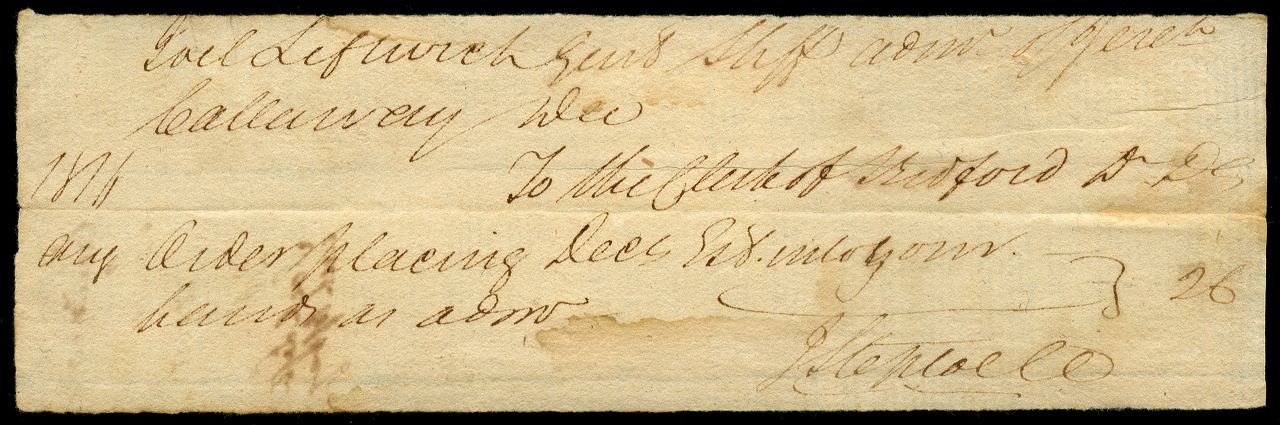 Joel Leftwich Genl Shff admr of Jereh
Callaway Dec
1816 To the Clerk of Bedford Dr
Aug Order placing Decs Est. into your
hands as admr } 26
J Steptoe CC